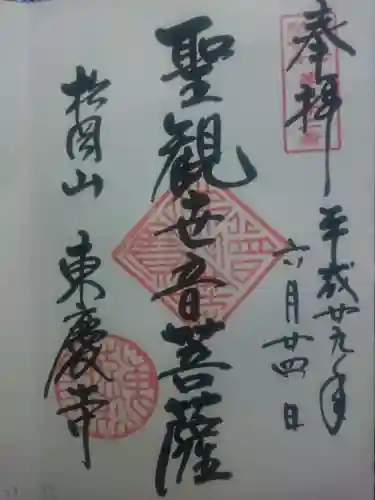 奉拝
平成廿九年
六月廿四日
聖観世音菩薩
松岡山 東慶寺